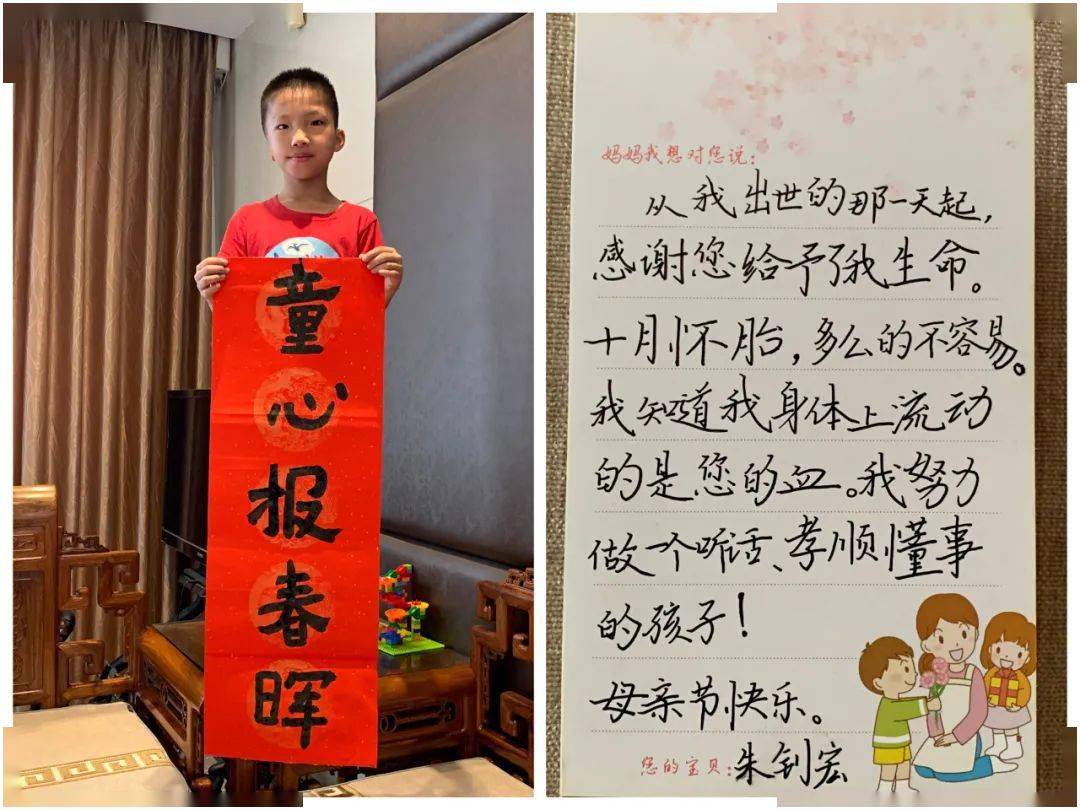 童心报春晖
妈妈我想对您说：
从我出世的那一天起，
感谢您给予了我生命。
十月怀胎，多么的不容易。
我知道我身体上流动
的是您的血。我努力
做一个听话、孝顺懂事
的孩子！
母亲节快乐。
您的宝贝：朱钊宏